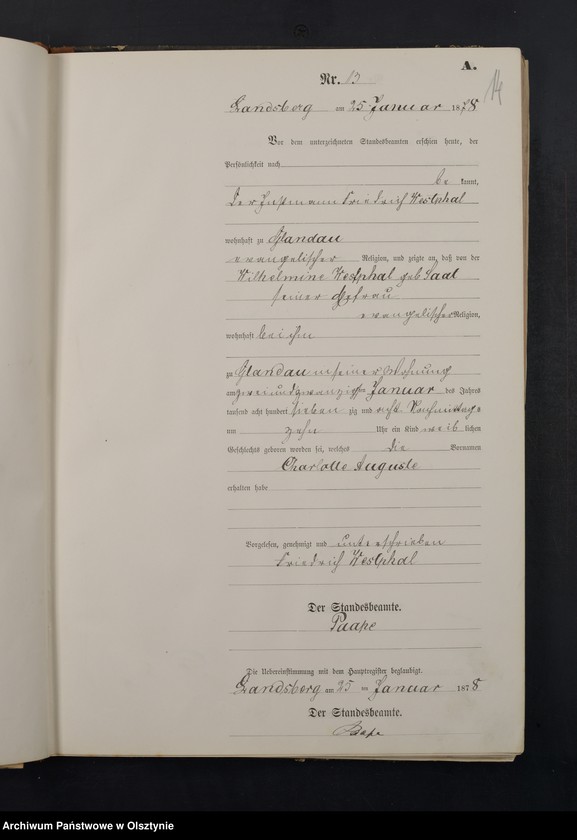 A.
14
Nr. 13
Landsberg am 25 Januar 1878
Vor dem unterzeichneten Standesbeamten erschien heute, der
Persönlichkeit nach
be kannt,
Der Instmann Friedrich Westphal
wohnhaft zu Glandau
evangelischer Religion, und zeigte an, daß von der
Wilhelmine Westphal geb Saal
seiner Ehefrau
evangelischer Religion,
wohnhaft bei ihm
zu Glandau in seiner Wohnung
am zweiundzwanzigsten Januar des Jahres
tausend acht hundert sieben zig und acht Vormittags
um zehn Uhr ein Kind weib lichen
Geschlechts geboren worden sei, welches die Vornamen
Charlotte Auguste
erhalten habe
Vorgelesen, genehmigt und unterschrieben
Friedrich Westphal
Der Standesbeamte.
Paape
Die Uebereinstimmung mit dem Hauptregister beglaubigt.
Landsberg am 25 ten Januar 1878
Der Standesbeamte.
Paape
Archiwum Państwowe w Olsztynie